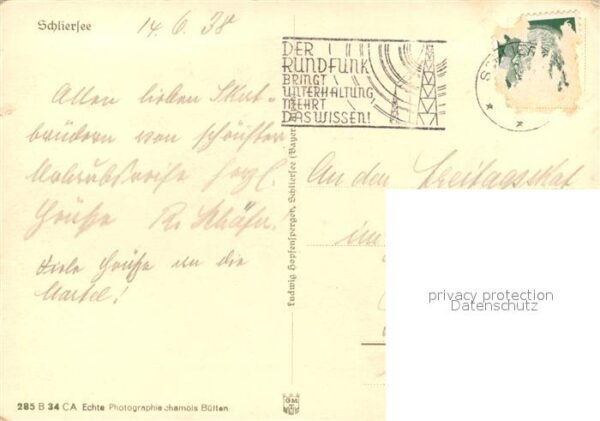 Schliersee
14. 6. 38
DER
RUNDFUNK
BRINGT
UNTERHALTUNG
MEHRT
DAS WISSEN!
Allen lieben Skat-
brüdern von schönster
Urlaubsreise herzl.
Grüße R. Schäfer.
Viele Grüße an die
An den Freitagsskat
im
Ludwig Hopfensperger, Schliersee (Bayer
privacy protection
Datenschutz
285 B 34 CA Echte Photographie chamois Bütten
GM